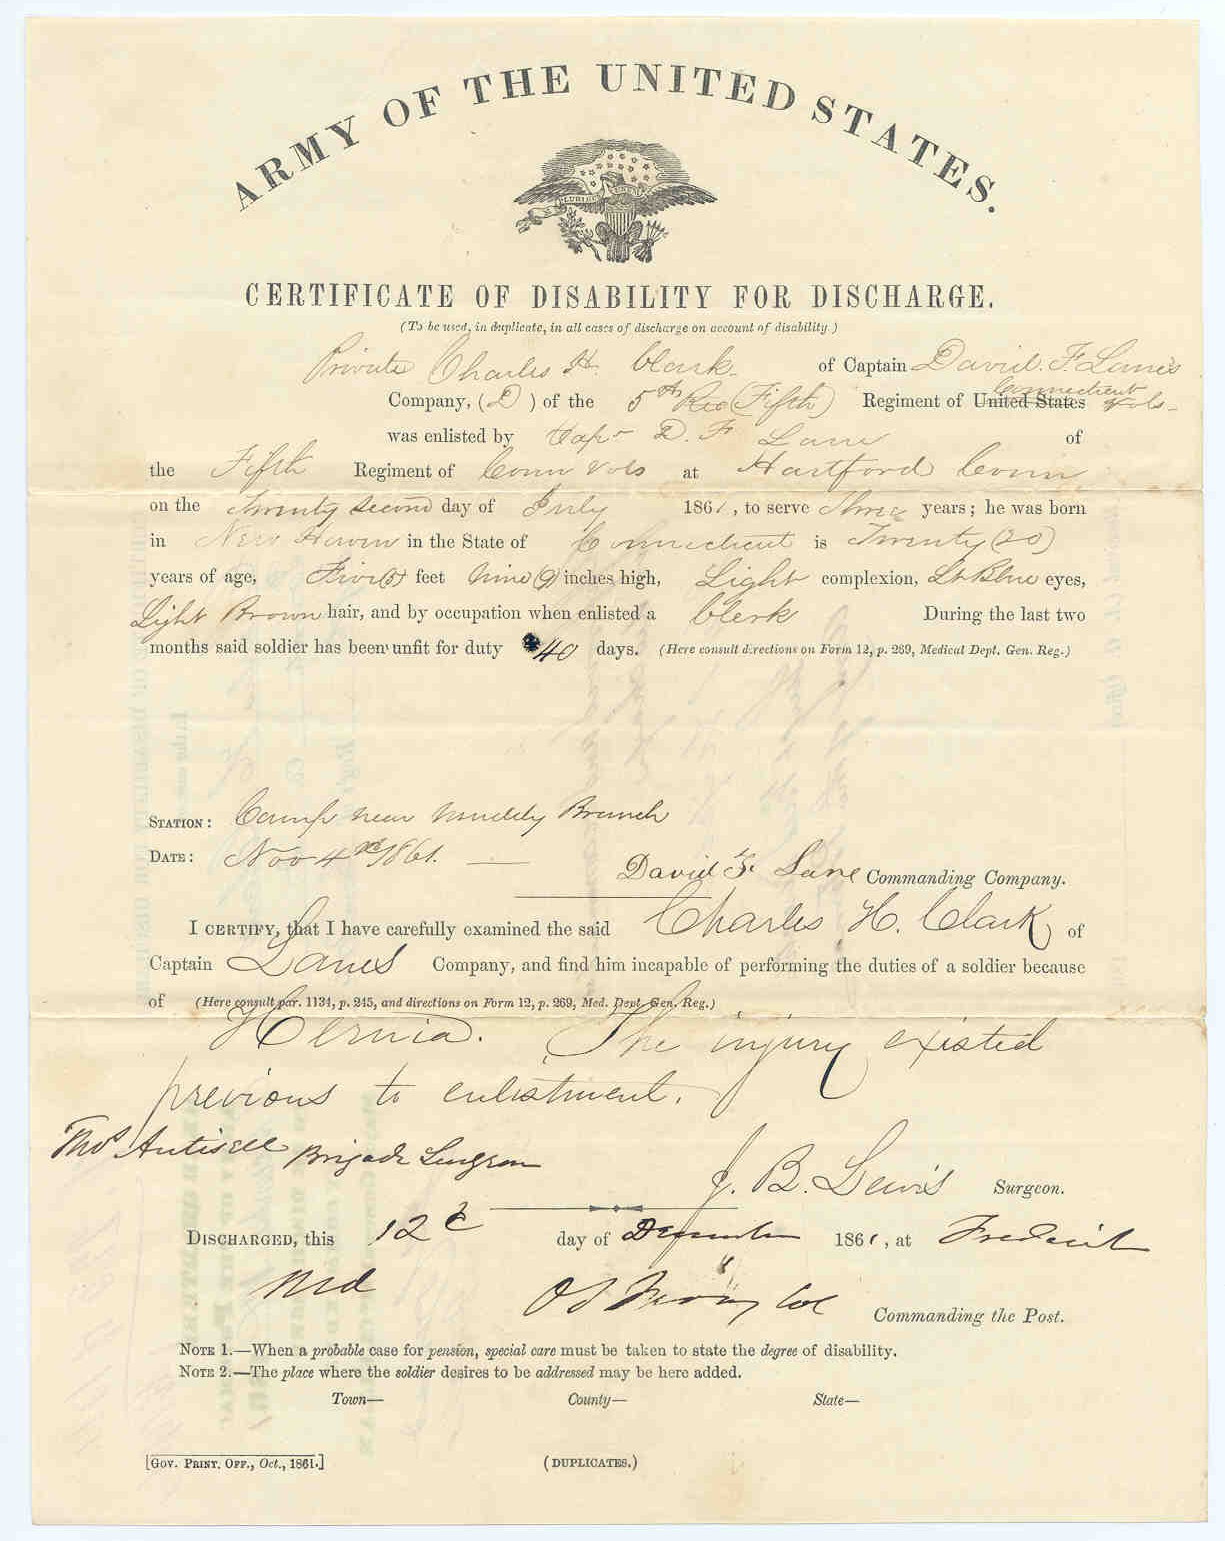 ARMY OF THE UNITED STATES.
CERTIFICATE OF DISABILITY FOR DISCHARGE.
(To be used, in duplicate, in all cases of discharge on account of disability.)
Private Charles H. Clark. of Captain David. F. Lane's
Connecticut
Company, (D) of the 5th Reg (Fifth) Regiment of United States Vols-
was enlisted by Capt D. F Lane of
the Fifth Regiment of Conn Vols at Hartford Conn
on the Twenty second day of July 1861, to serve Three years; he was born
in New Haven in the State of Connecticut is Twenty (20)
years of age, Five (5) feet Nine (9) inches high, Light complexion, Lt Blue eyes,
Light Brown hair, and by occupation when enlisted a Clerk During the last two
months said soldier has been unfit for duty 40 days. (Here consult directions on Form 12, p. 269, Medical Dept. Gen. Reg.)
STATION: Camp near Muddy Branch
DATE: Nov 4th 1861.
David F. Lane Commanding Company.
I CERTIFY, that I have carefully examined the said Charles H. Clark, of
Captain Lanes Company, and find him incapable of performing the duties of a soldier because
of (Here consult par. 1134, p. 245, and directions on Form 12, p. 269, Med. Dept. Gen. Reg.)
Hernia. The injury existed
previous to enlistment.
Thos Antisell Brigade Surgeon
J. B. Lewis Surgeon.
DISCHARGED, this 12 day of December 1861, at Frederick
Md
Col Commanding the Post.
NOTE 1.—When a probable case for pension, special care must be taken to state the degree of disability.
NOTE 2.—The place where the soldier desires to be addressed may be here added.
Town— County— State—
[GOV. PRINT. OFF., Oct., 1861.] (DUPLICATES.)